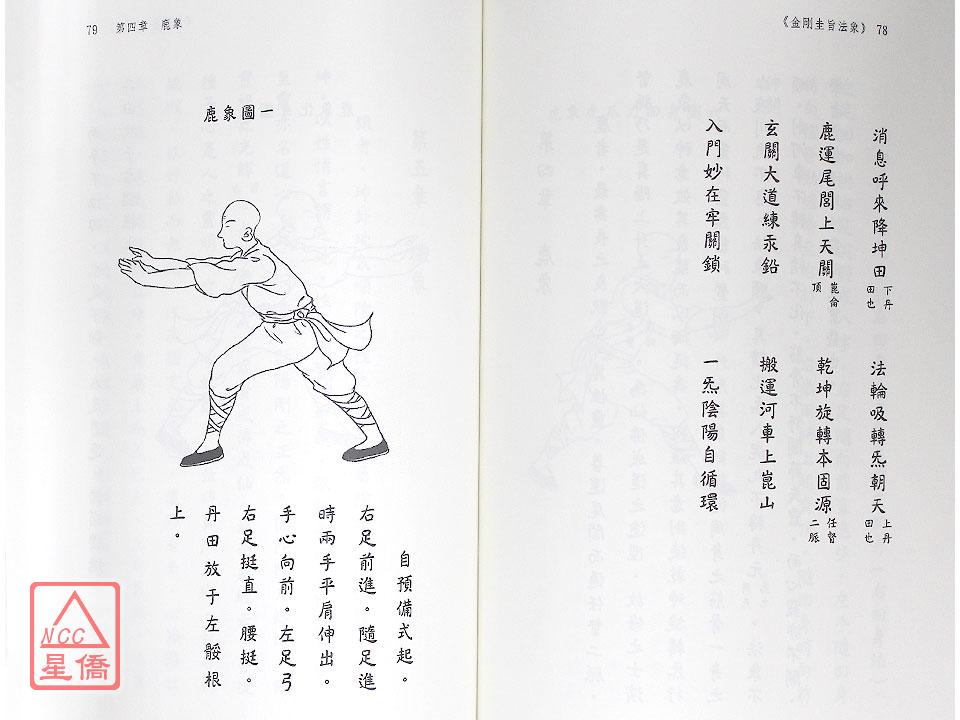 《金剛圭旨法象》 78
消息呼來降坤田下丹田也
法輪吸轉炁朝天上丹田也
鹿運尾閭上天關崑侖頂
乾坤旋轉本固源任督二脈
玄關大道練汞鉛
搬運河車上崑山
入門妙在牢關鎖
一炁陰陽自循環
79 第四章 鹿象
鹿象圖一
自預備式起。
右足前進。隨足進
時兩手平肩伸出。
手心向前。左足弓
右足挺直。腰挺。
丹田放于左骽根
上。
NCC
星僑